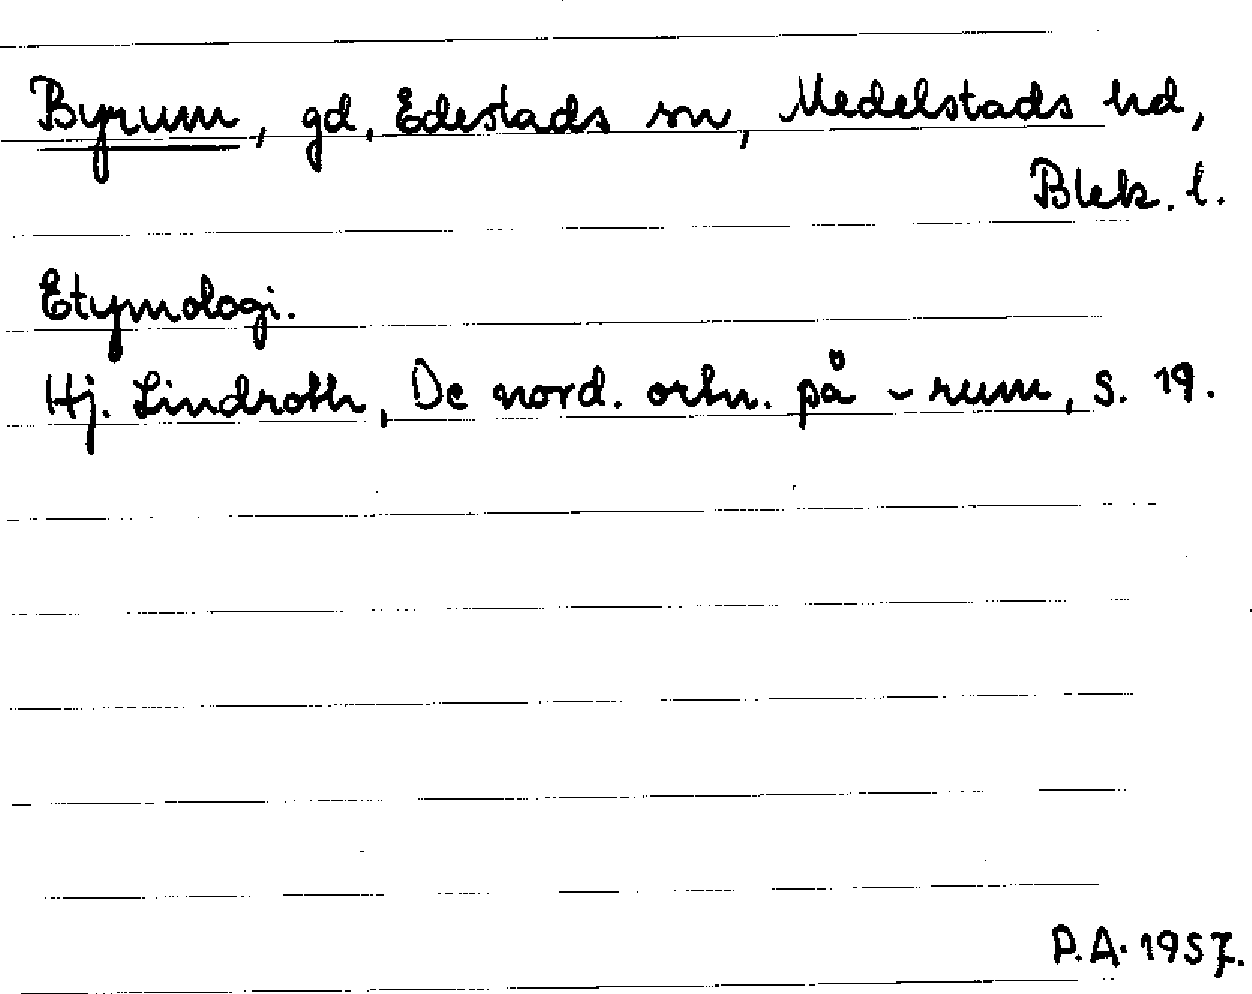 Byrum, gd, Edestads sn, Medelstads hd,
Blek. l.
Etymologi.
Hj. Lindroth, De nord. ortn. på -rum, s. 19.
P.A. 1957.